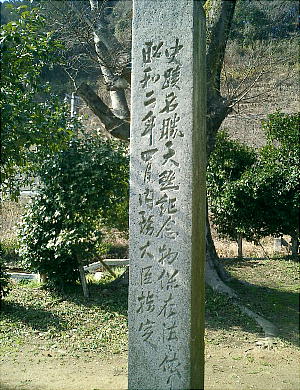 史蹟名勝天然紀念物保存法ニ依リ
昭和二年四月内務大臣指定